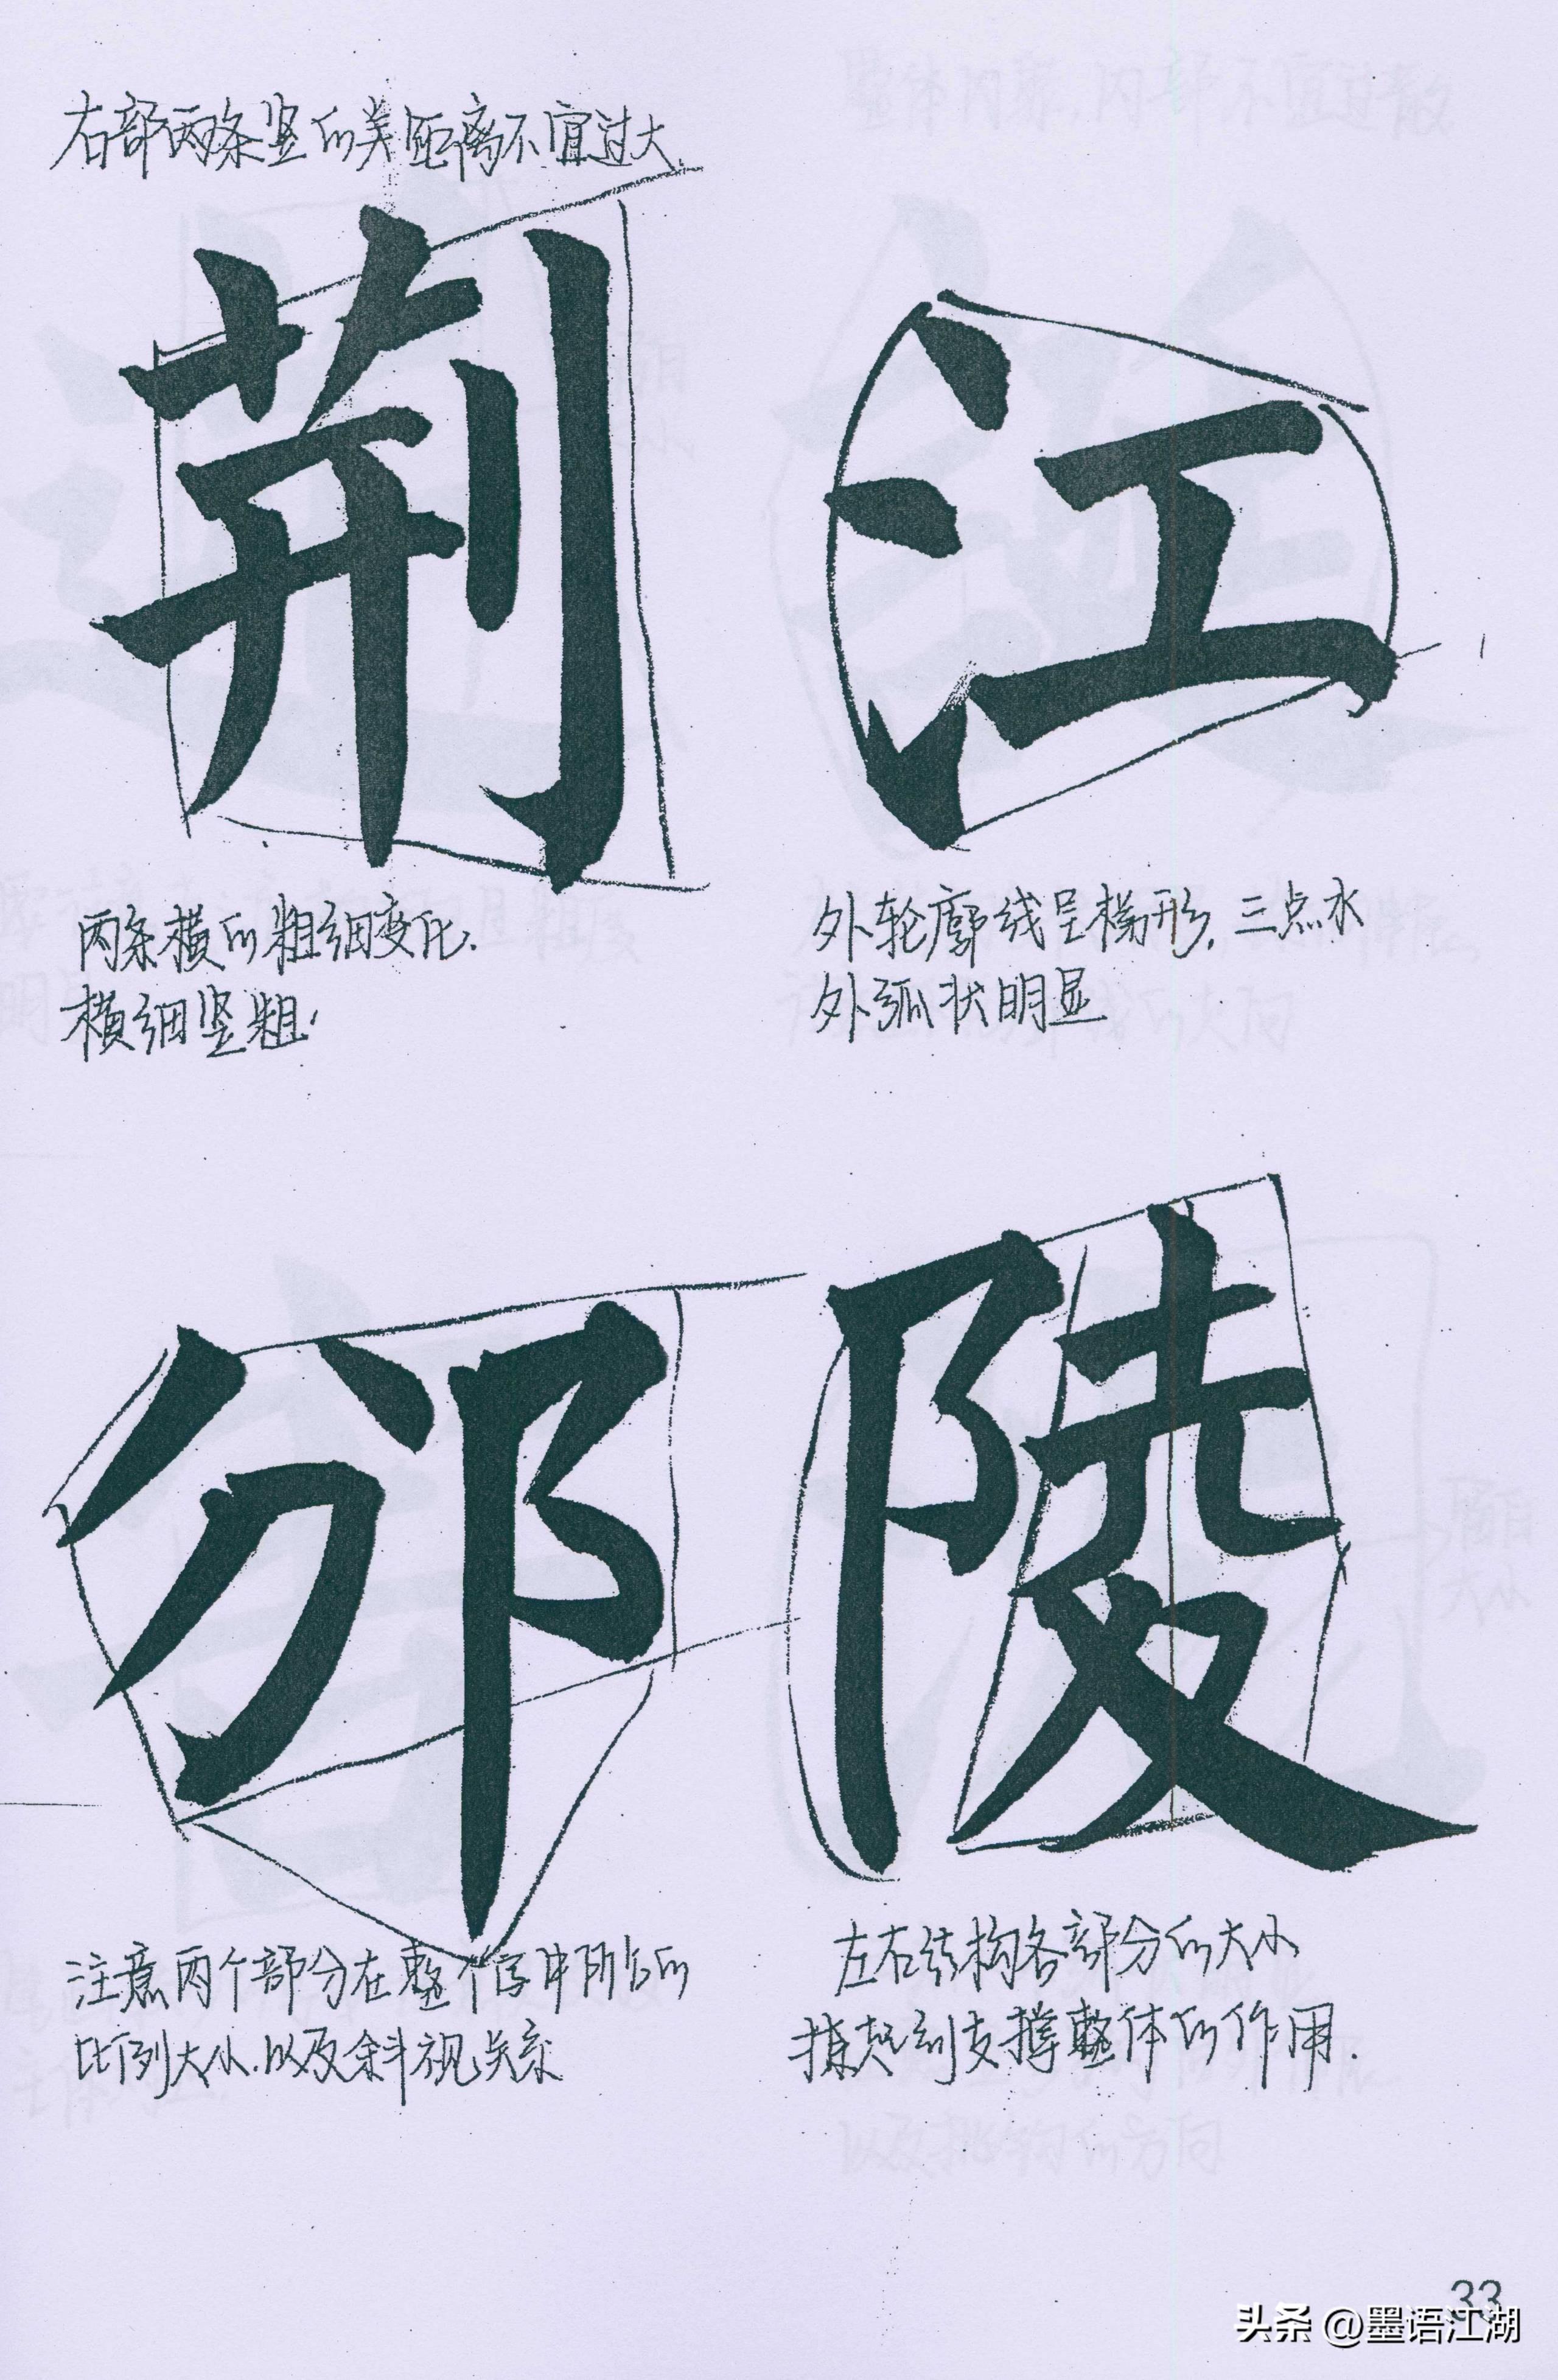 右部两条竖的关距离不宜过大.
荆
江
两条横的粗细变化.
横细竖粗.
外轮廓线呈梯形, 三点水
外弧状明显
邠
陵
注意两个部分在整个字中所占的
比列大小.以及斜视关系
左右结构各部分的大小
捺起到支撑整体的作用.
33
头条 @墨语江湖